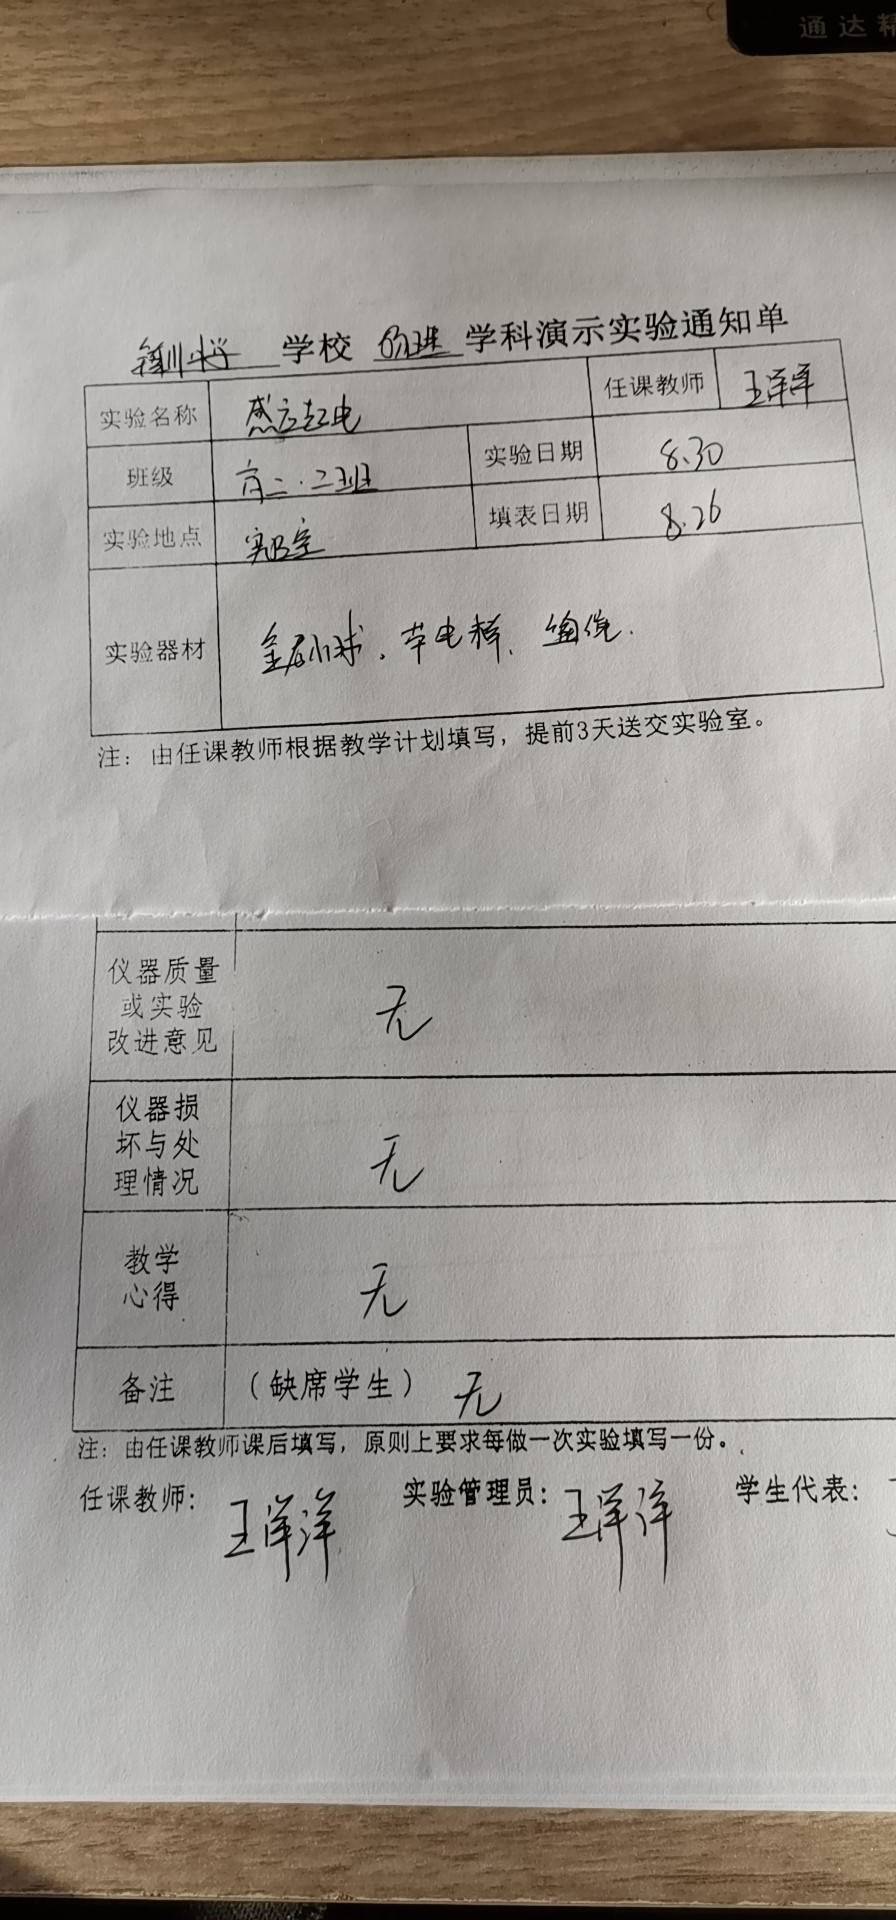 通达精
学校 物理 学科演示实验通知单
实验名称 感应起电 任课教师 王洋洋
班级 高二.二班 实验日期 8.30
实验地点 实验室 填表日期 8.26
实验器材 金属小球、带电棒、
注：由任课教师根据教学计划填写，提前3天送交实验室。
仪器质量
或实验
改进意见
无
仪器损
坏与处
理情况
无
教学
心得
无
备注 （缺席学生） 无
注：由任课教师课后填写，原则上要求每做一次实验填写一份。
任课教师：王洋洋 实验管理员：王洋洋 学生代表：